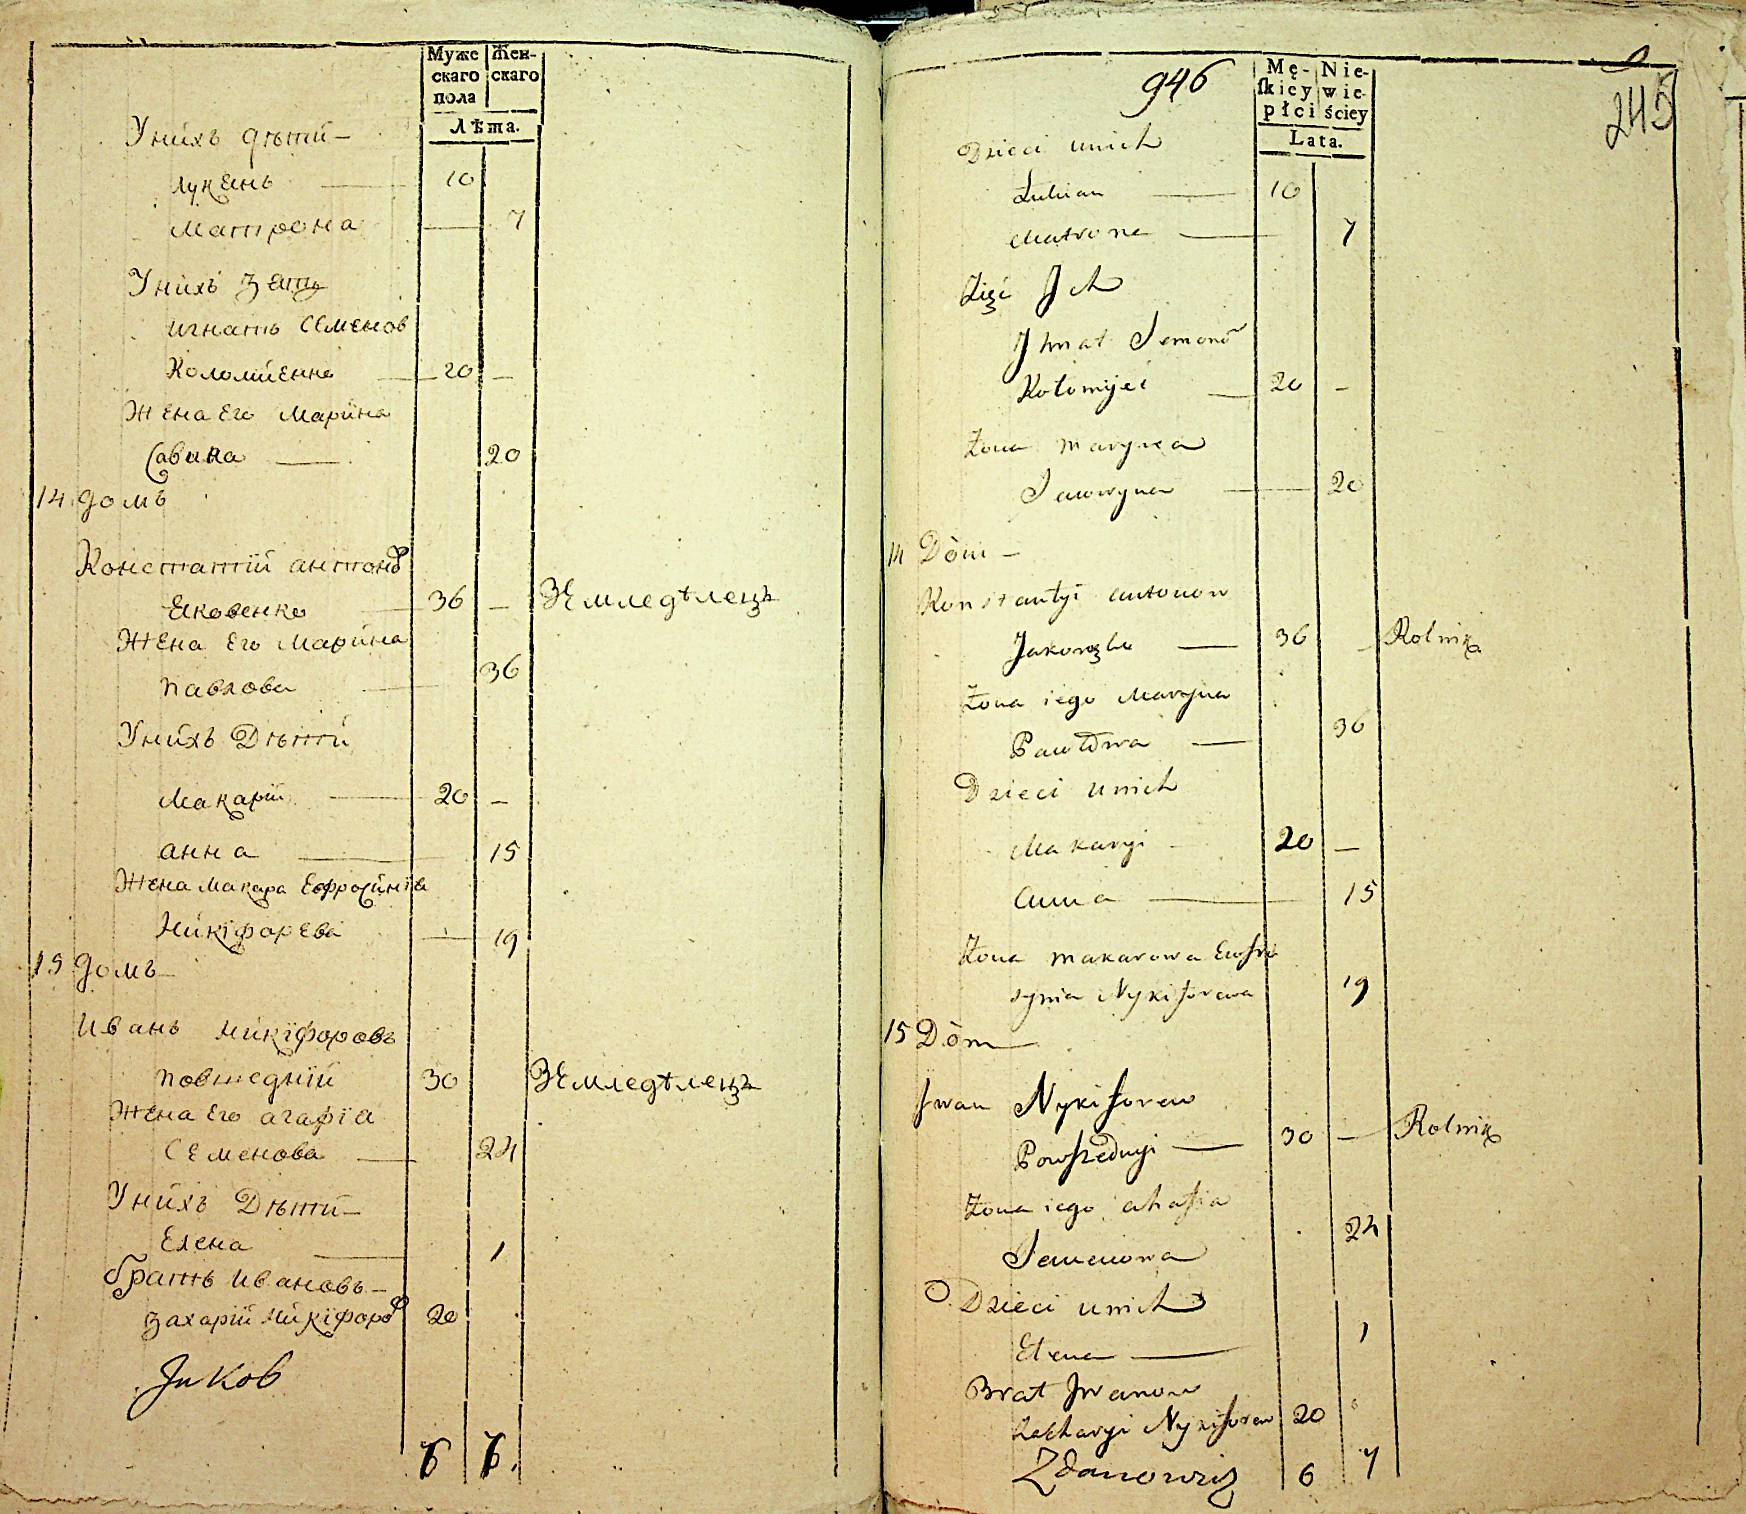 Муже
скаго
пола
Жен-
скаго
Лѣта.
Унихъ дѣти —
Лукѧнъ — 10
Матрона — 7
Унихъ зѧть
игнатъ Семенов
Коломиецъ — 20 —
Жена Его Марина
Савина — 20
14 домъ
Константій антоновъ
Яковенко — 36 — Земледѣлецъ
Жена Его Марина
Павлова — 36
Унихъ Дѣти
Макарій — 20 —
анна — 15
Жена Макара Еѵфросиніа
Никіфорева — 19
15 домъ —
Иванъ Никіфоровъ
Повшедній 30 Земледѣлецъ
Жена Его агафіа
Семенова — 24
Унихъ Дѣти —
Елена — 1
братъ Ивановъ —
Захарій Никіфоровъ 20
946
245
Mę-
ſkiey
płci
Nie-
wie-
ściey
Lata.
Dzieci unich
Łukian — 10
Matrona — 7
Zięć Jch
Jhnat Semonow
Kołomyieć — 20 —
Żona Maryna
Sawwyna — 20
14 Dòm —
Konstantyi antonow
36 — Rolnik
Żona iego Maryna
Pawłowa — 36
Dzieci unich
Makaryi 20 —
Anna — 15
Żona makarowa Ewfro
synia Nykiforewa 19
15 Dòm —
Jwan Nykiforow
Powſzednyi — 30 — Rolnik
Żona iego ahafia
Semenowa 24
Dzieci unich
Elena — 1
Brat Jwanow
Zacharyi Nykiforow 20
Zdanowicz 6 7